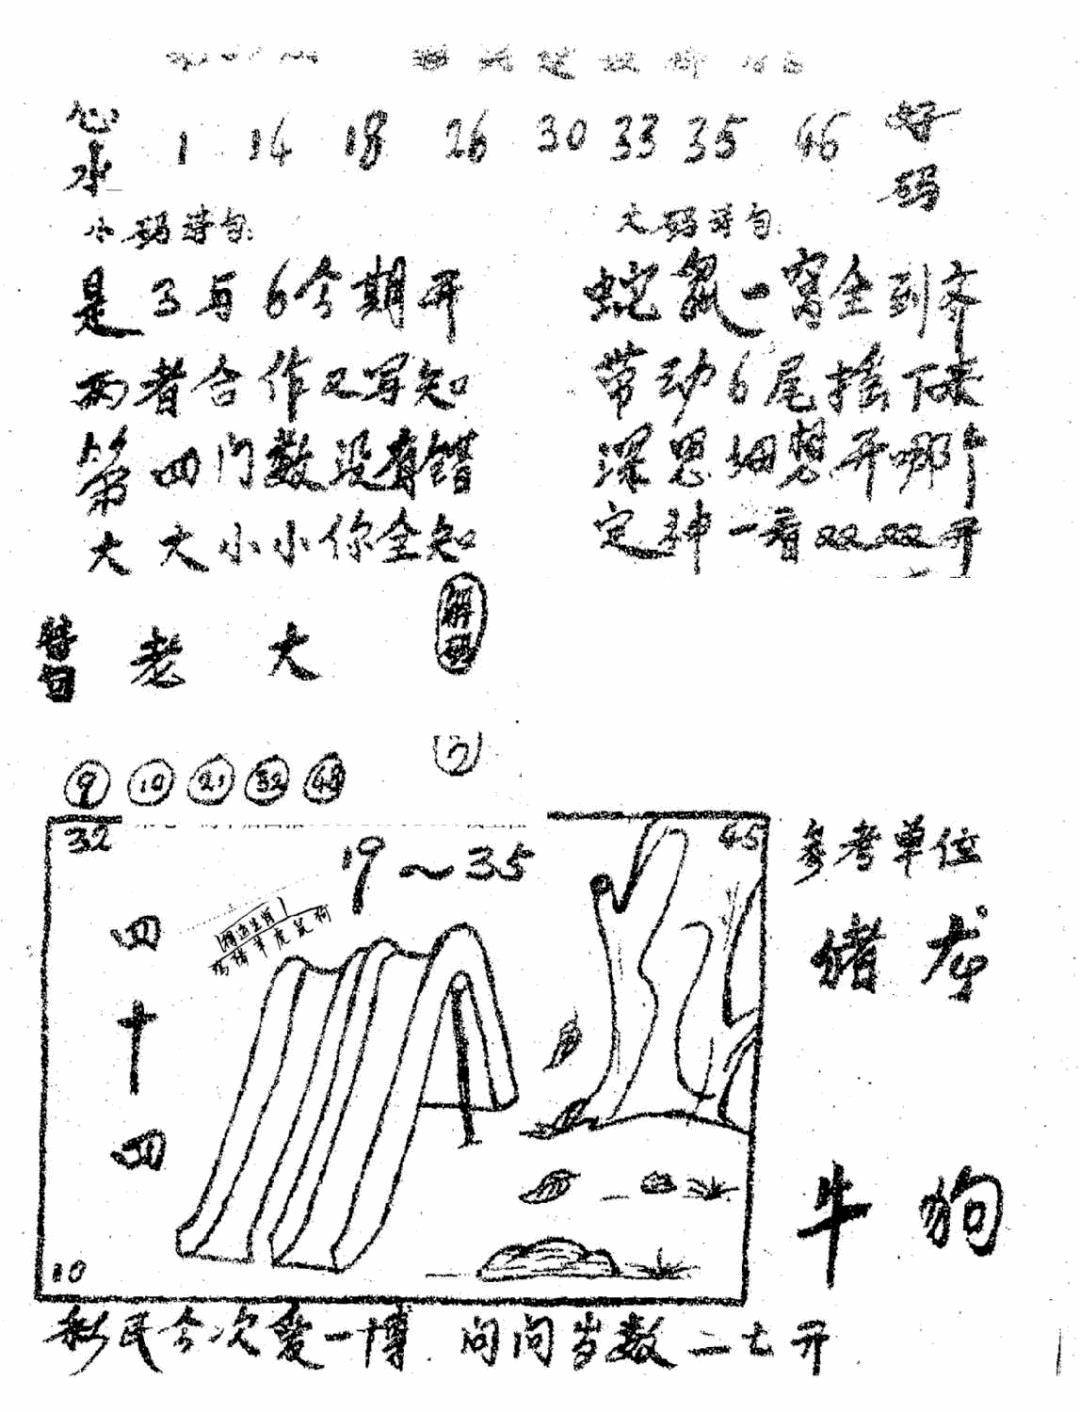 心水 1 14 18 26 30 33 35 46 好码
小码诗句:
是3与6今期开
两者合作又写知
第四门数没有错
大大小小你全知
大码诗句:
蛇鼠一窝全到齐
带动6尾摇下来
深思细想开哪个
定神一看双双开
老大
解
9 10 21 32
32 45
19~35
四十四
10
参考单位
猪 龙
牛 狗
彩民今次爱一博 问问岁数二七开